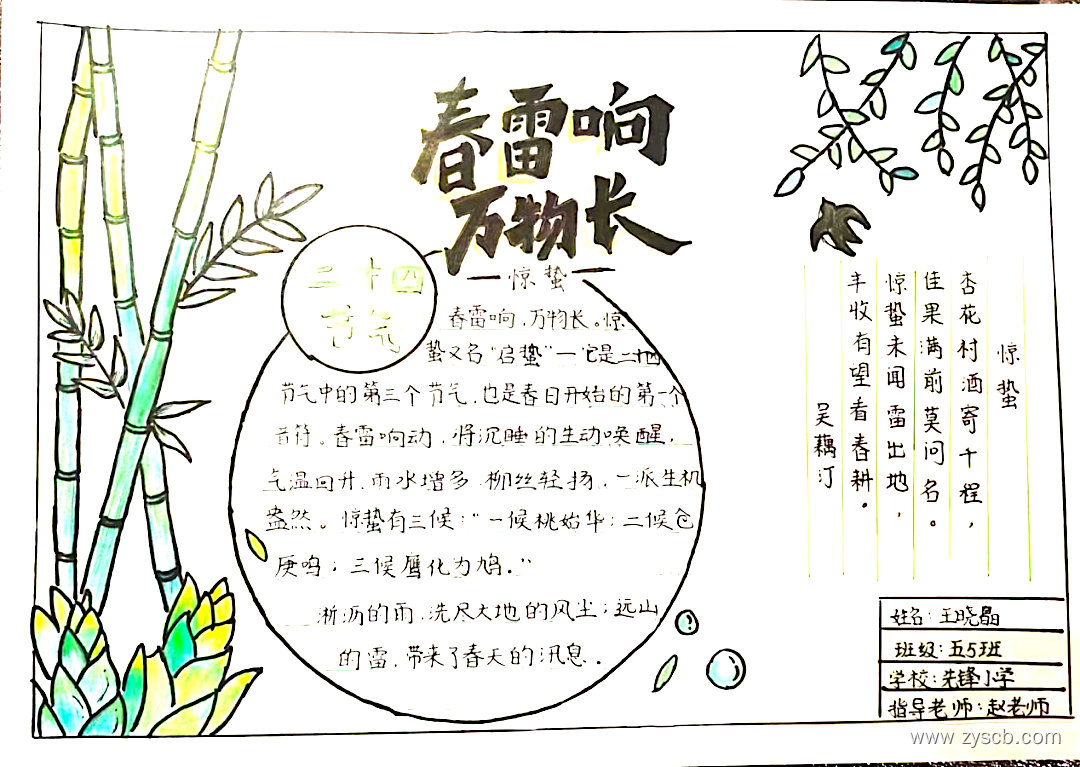 春雷响
万物长
惊蛰
二十四
节气
春雷响，万物长。惊
蛰又名“启蛰”一它是二十四
节气中的第三个节气，也是春日开始的第一个
音符。春雷响动，将沉睡的生动唤醒，
气温回升，雨水增多，柳丝轻扬，一派生机
盎然。惊蛰有三候：“一候桃始华；二候仓
庚鸣；三候鹰化为鸠。”
淅沥的雨，洗尽大地的风尘；远山
的雷，带来了春天的汛息。
惊蛰
杏花村酒寄千程，
佳果满前莫问名。
惊蛰未闻雷出地，
丰收有望看春耕。
吴藕汀
姓名：王晓晶
班级：五5班
学校：先锋小学
指导老师：赵老师
www.zyscb.com